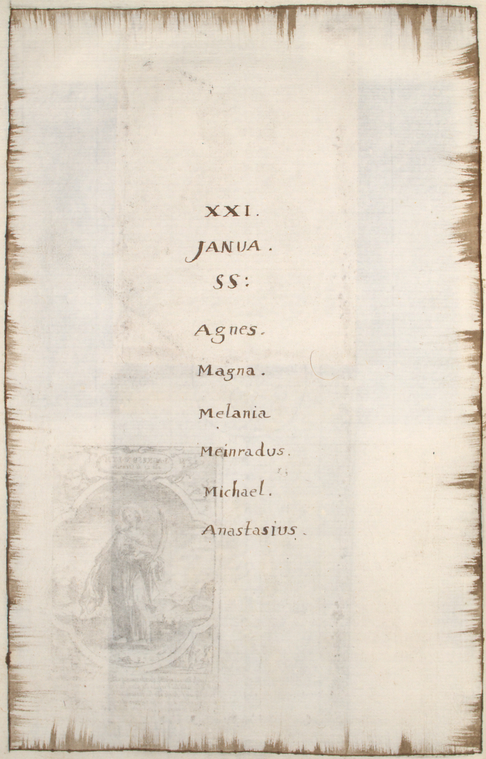 XXI.
JANUA.
SS:
Agnes.
Magna.
Melania
Meinradus.
Michael.
Anastasius.